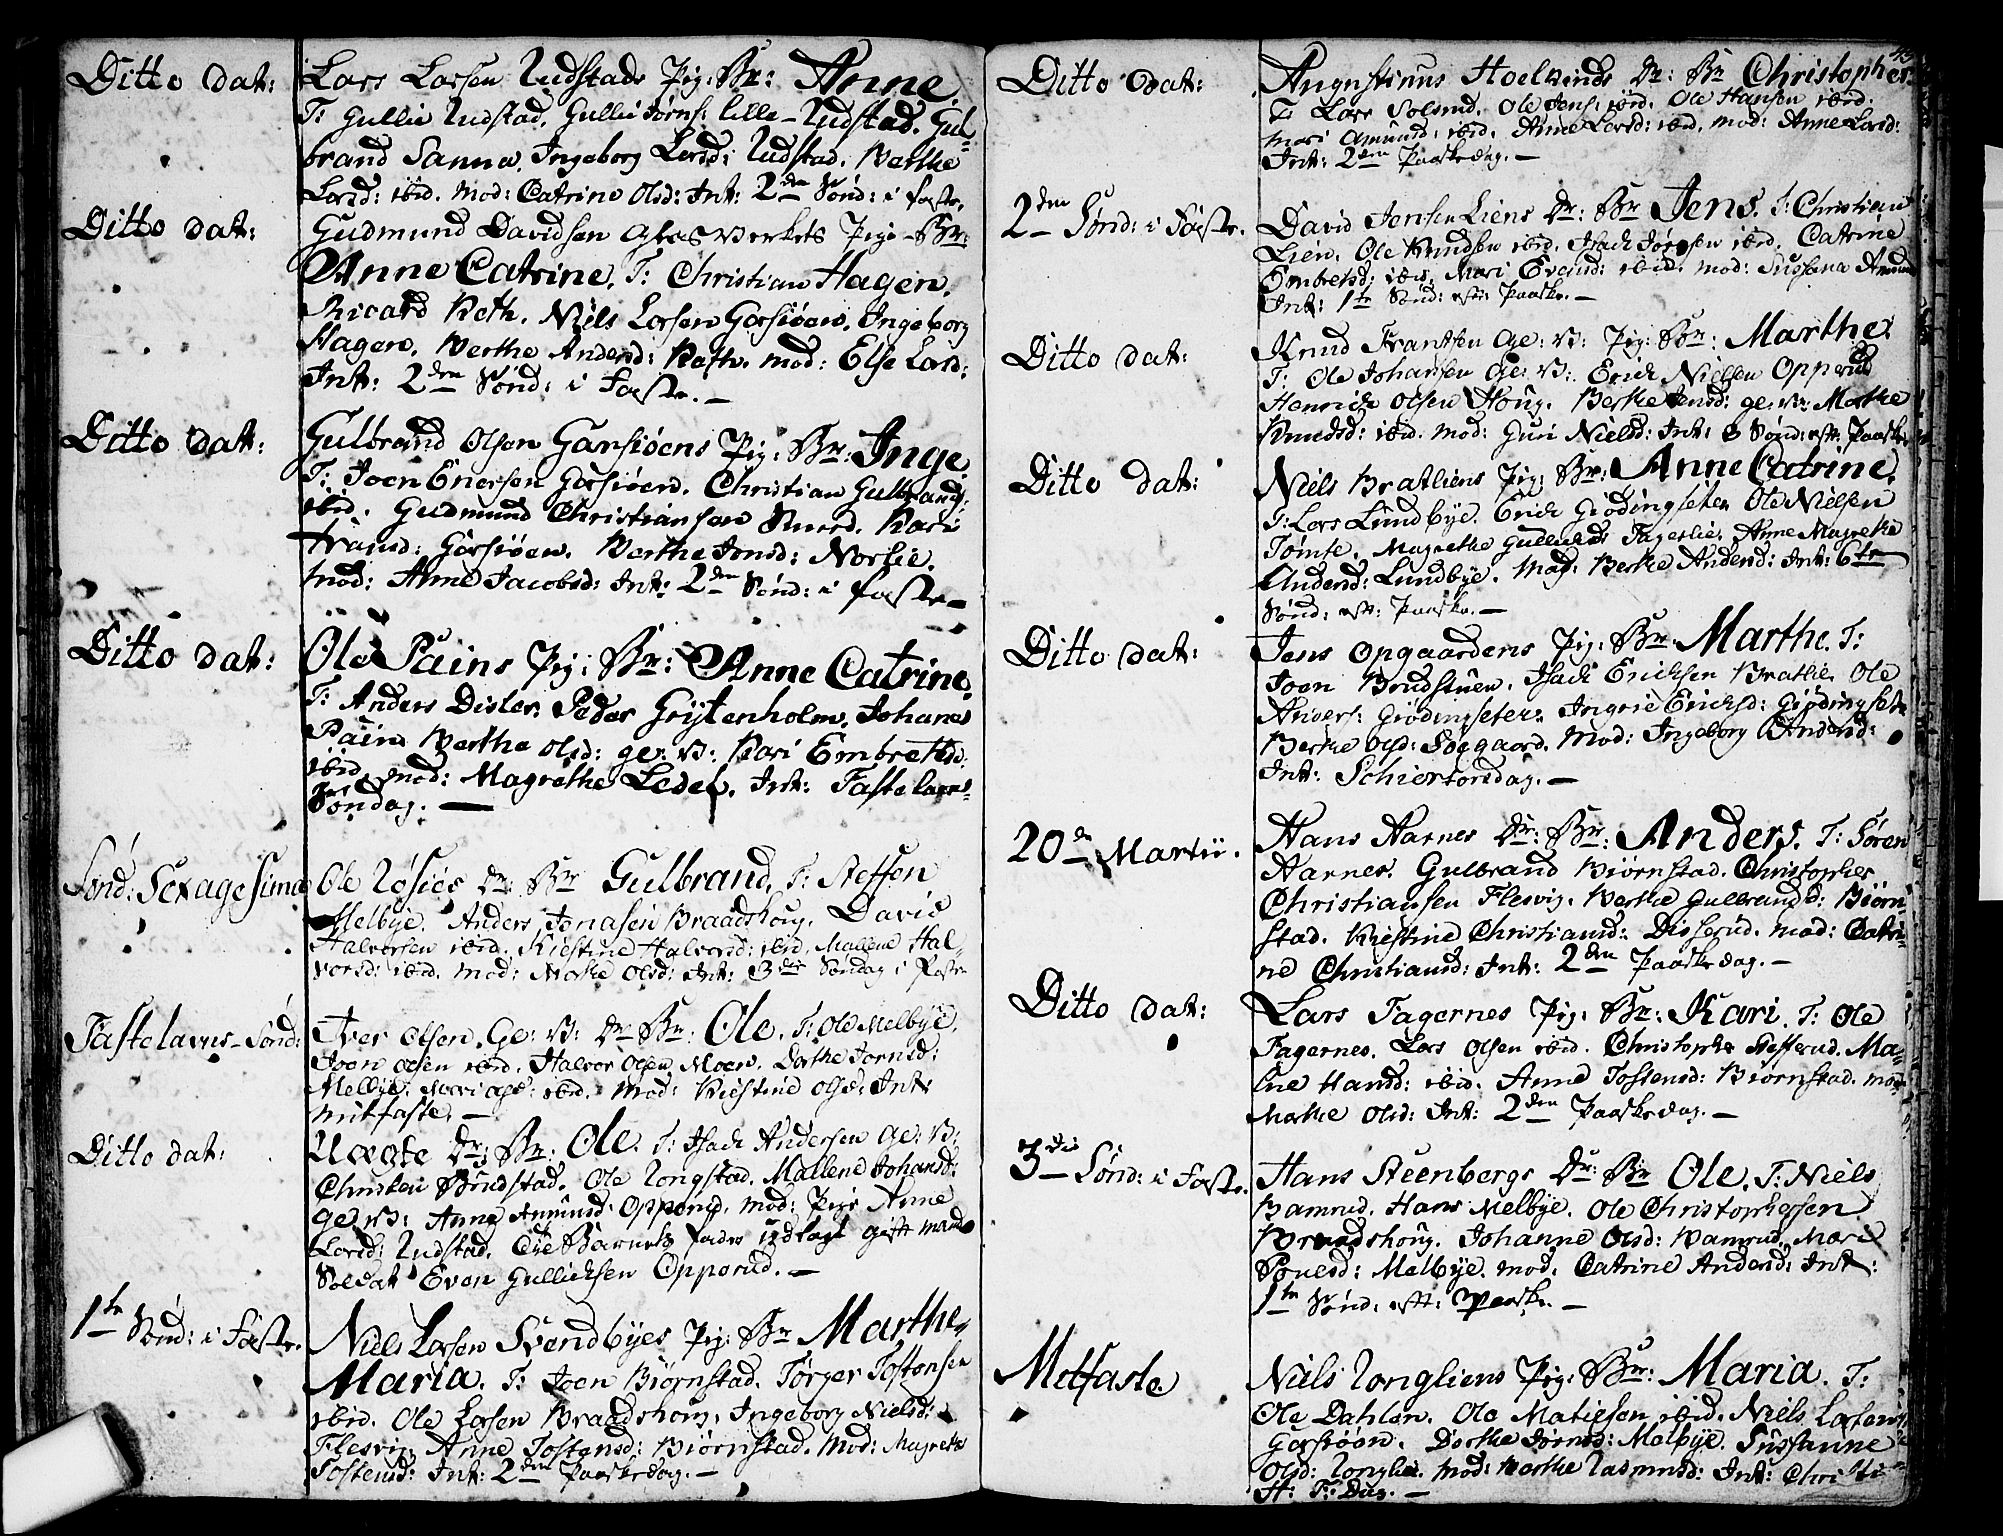 Ditto dat: Lars Larsen Rudstads Pig: Br: Anne
T: Gullic Rudstad. Gullic Jørns: lille-Rudstad. Gul-
brand Sanna. Ingeborg Larsd: Rudstad. Berthe
Larsd: ibid. mod: Catrine Olsd: Int: 2den Sønd: i faste.
Ditto dat: Gudmund Davidsen Glasverkets Pige-Br:
Anne Catrine. T: Christian Hagen.
Ricard Roth. Niels Larsen Garsiøen. Ingeborg
Hagen. Berthe Andersd: Roth. mod: Else Larsd:
Int: 2den Sønd: i Faste. —
Ditto dat: Gulbrand Olsen Garsiøens Pig: Br: Inge.
T: Joen Enersen Garsiøen. Christian Gulbrands:
ibid. Gudmund Christiansen Kari
Garsiøen. Berthe Jonsd: Norlie.
mod: Anne Jacobsd: Int: 2den Sønd: i faste —
Ditto dat: Ole Pains Pig: Br: Anne Catrine.
T: Anders Disler. Peder Grytenholm. Johanes
Pain. Berthe Olsd: ge: V: Kari Embretsd:
ibid. mod: Magrethe Ledel. Int: Fastelavns-
Søndag. —
Sønd: Sexagesima Ole Røsies Dr: Br: Gulbrand. T: Steffen
Melbye. Anders Jonasen Braadshoug. David
Halvorsen ibid. Kiestine Halvorsd: ibid. Mallene Hal-
vorsd: ibid. mod: Marthe Olsd: Int: 3die Søndag i Faste
Fastelavns-Sønd: Iver Olsen. Ge: V: Dr: Br: Ole. T: Ole Melbye.
Joen Olsen ibid. Halvor Olsen Moen. Dorthe Jornsd:
Melbye. Mari ibid. mod: Kiestine Olsd: Int:
mitfaste. —
Ditto dat: Uægte Dr: Br: Ole. T: Isach Andersen Ge: V:
Christen Bondstad. Ole Rongstad. Mallene Johansd:
ge: V: Anne Amunsd: Opperud. mod: Pige Anne
Larsd: Rudstad. Barnets fader udlagt gift mand
Soldat Even Gullichsen Opperud. —
1te Sønd: i Faste. Niels Larsen Svendbyes Pig: Br: Marthe-
Maria. T: Joen Biørnstad. Tørger Tostensen
ibid. Ole Larsen Braadshoug. Ingeborg Nielsd:
Flesvig. Anne Tostensd: Biørnstad. Mod: Magrete
Tostensd: Int: 2den Paaskedag. —
Ditto dat: Augustinus Hoelseinds Dr: Br: Christopher
T: Lars Solerud. Ole Jens: ibid. Ole Hansen ibid.
Mari Amunsd: ibid. Anne Larsd: ibid. mod: Anne Larsd:
Int: 2den Paaskedag. —
2den Sønd: i Faste. David Jensen Liens Dr: Br: Jens. T: Christian
Lien. Ole Knudsen ibid. Isach Jørgsen ibid. Catrine
Embretsd: ibid. Mari Evensd: ibid. mod: Sussana
Int: 1te Sønd: eft: Paaske. —
Ditto dat: Knud Frantsen Ge: V: Pig: Br: Marthe.
T: Ole Johansen Ge: V: Erich Nielsen Opperud
Henrich Olsen Houg. Berthe Jensd: ge: V: Marthe
Knudsd: ibid. mod: Guri Nielsd: Int: 3 Sønd: eft: Paaske
Ditto dat: Niels Bratliens Pig: Br: Anne Catrine.
T: Lars Lundbye. Erich Giødingseter. Ole Nielsen
Tømte. Magrethe Fagerlie. Anne Magrethe
Andersd: Lundbye. Mod: Berthe Andersd: Int: 6te
Sønd: eft: Paaske. —
Ditto dat: Jens Opgaardens Pig: Br: Marthe. T:
Joen Brudstuen. Isach Erichsen Bratlie. Ole
Anders: Giødingseter. Ingrie Erichsd: Giødingset:
Berthe Olsd: Søegaard. Mod: Ingeborg Andersd:
Int: Schiertorsdag. —
20de Martii. Hans Harnes Dr: Br: Anders. T: Søren
Harnes. Gulbrand Biørnstad. Christopher
Christiansen Flesvig. Berthe Gulbrandsd: Biørn-
stad. Kiestine Christiansd: Disserud. mod: Catri-
ne Christiansd: Int: 2den Paaskedag. —
Ditto dat: Lars Fagernes Pig: Br: Kari. T: Ole
Fagernes. Lars Olsen ibid. Christopher Ma-
lene Hansd: ibid. Anne Tostensd: Biørnstad. mod:
Marthe Olsd: Int: 2den Paaskedag. —
3die Sønd: i Faste. Hans Steenbergs Dr: Br: Ole. T: Niels
Bamrud. Hans Melbye. Ole Christophersen
Braadshoug. Johanne Olsd: Bamrud. Mari
Povelsd: Melbye. mod: Catrine Andersd: Int:
1te Sønd: eft: Paaske. —
Mitfaste. Niels Rongliens Pig: Br: Maria. T:
Ole Dahlen. Ole Matiesen ibid. Niels Larsen
Garsiøen. Dorthe Jørnsd: Melbye. Sussanne
Olsd: Ronglie. mod: Marthe Rasmusd: Int: Christi
H: F: Dag. —